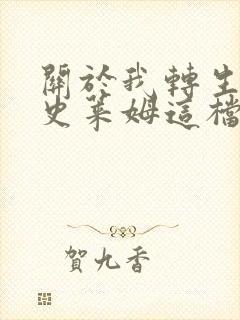 關於我轉生
史萊姆這檔
賀九香